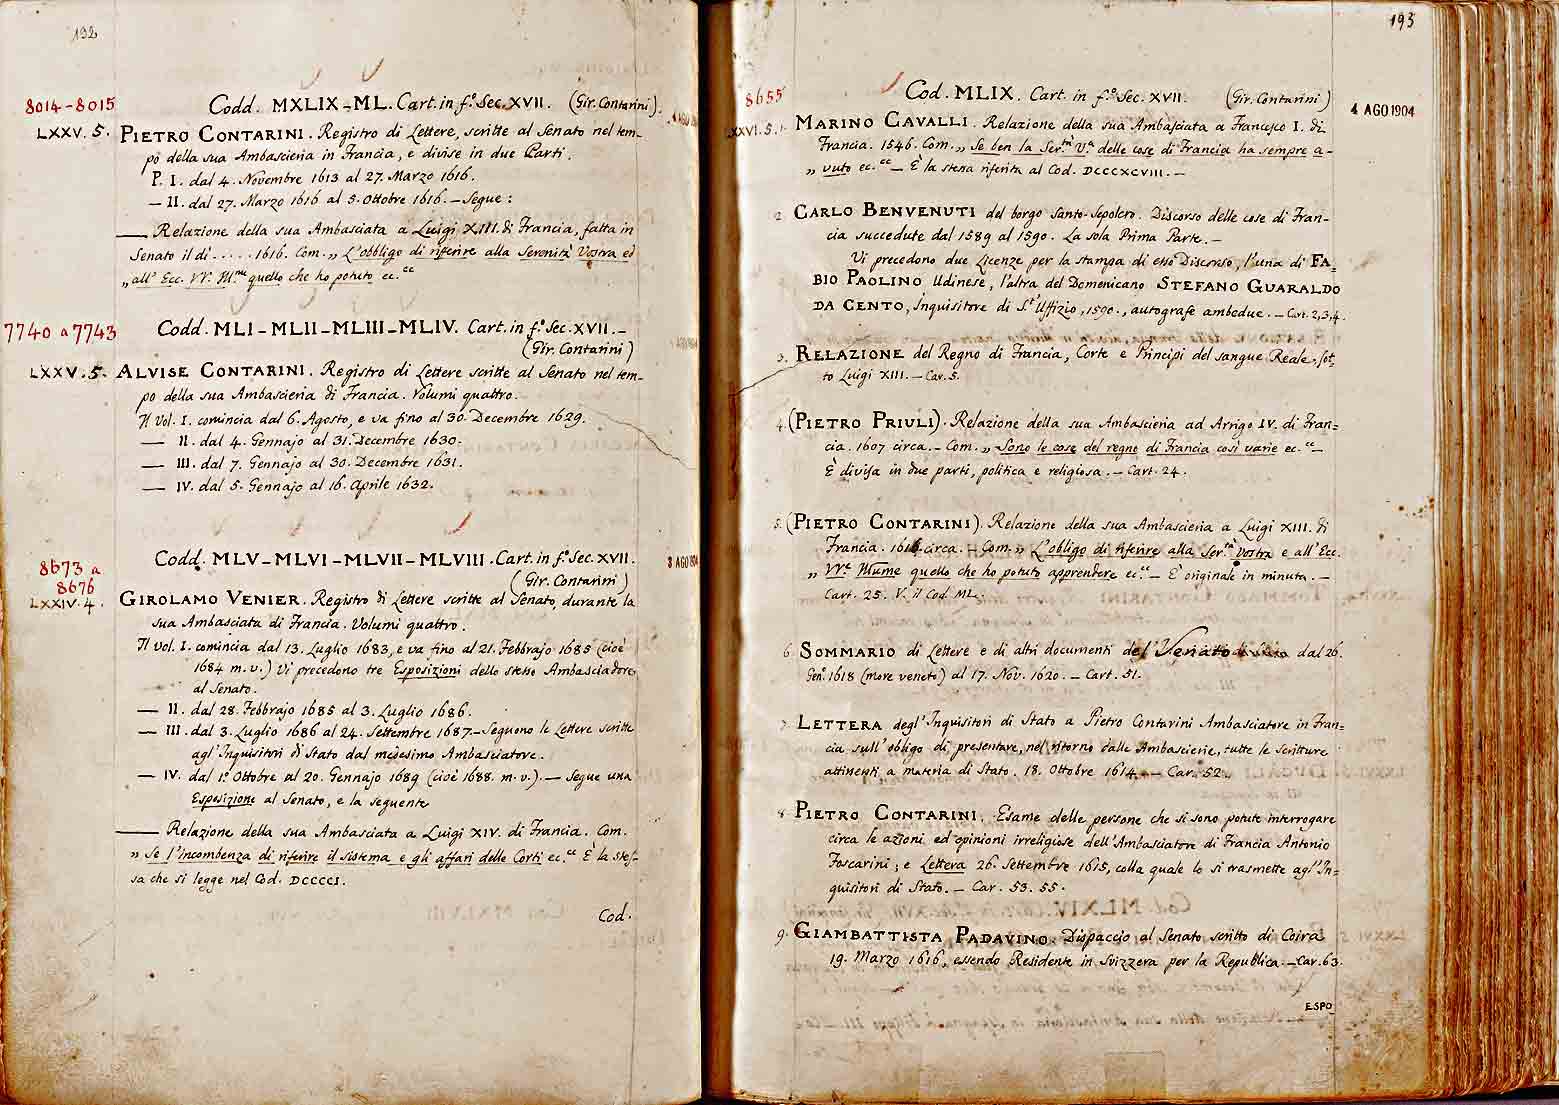 192
8014-8015
Codd. MXLIX-ML. Cart. in f.º Sec. XVII. (Gir. Contarini).
LXXV. 5. PIETRO CONTARINI. Registro di Lettere, scritte al Senato nel tem-
po della sua Ambascieria in Francia, e divise in due Parti.
P. I. dal 4. Novembre 1613 al 27. Marzo 1616.
— II. dal 27. Marzo 1616 al 5. Ottobre 1616. — Segue:
—— Relazione della sua Ambasciata a Luigi XIII. di Francia, fatta in
Senato il dì ..... 1616. Com. „ L'obbligo di riferire alla Serenità Vostra ed
„ all' Ecc. VV. Ill.me quello che ho potuto ec.cc
7740 a 7743
Codd. MLI-MLII-MLIII-MLIV. Cart. in f.º Sec. XVII. —
(Gir. Contarini)
LXXV. 5. ALVISE CONTARINI. Registro di Lettere scritte al Senato nel tem-
po della sua Ambascieria di Francia. Volumi quattro.
Il Vol. I. comincia dal 6. Agosto, e va fino al 30. Decembre 1629.
— II. dal 4. Gennajo al 31. Decembre 1630.
— III. dal 7. Gennajo al 30. Decembre 1631.
— IV. dal 5. Gennajo al 16. Aprile 1632.
8673 a
8676
Codd. MLV-MLVI-MLVII-MLVIII. Cart. in f.º Sec. XVII.
3 AGO 1904
(Gir. Contarini)
LXXIV. 4. GIROLAMO VENIER. Registro di Lettere scritte al Senato, durante la
sua Ambasciata di Francia. Volumi quattro.
Il Vol. I. comincia dal 13. Luglio 1683, e va fino al 21. Febbrajo 1685 (cioè
1684 m. v.) Vi precedono tre Esposizioni dello stesso Ambasciadore
al Senato.
— II. dal 28. Febbrajo 1685 al 3. Luglio 1686.
— III. dal 3. Luglio 1686 al 24. Settembre 1687. — Seguono le Lettere scritte
agl'Inquisitori di Stato dal medesimo Ambasciatore.
— IV. dal 1º Ottobre al 20. Gennajo 1689 (cioè 1688. m. v.). — Segue una
Esposizione al Senato, e la seguente
—— Relazione della sua Ambasciata a Luigi XIV. di Francia. Com.
„ Se l'incombenza di riferire il sistema e gli affari delle Corti ec.cc È la stes-
sa che si legge nel Cod. DCCCCI.
Cod.
193
8655
Cod. MLIX. Cart. in f.º Sec. XVII. (Gir. Contarini)
4 AGO 1904
LXXVI. 5. 1. MARINO CAVALLI. Relazione della sua Ambasciata a Francesco I. di
Francia. 1546. Com. „ Se ben la Ser.tà V.a delle cose di Francia ha sempre a-
„ vuto ec.cc — È la stessa riferita al Cod. DCCCXCVIII. —
2. CARLO BENVENUTI del borgo Santo-Sepolcro. Discorso delle cose di Fran-
cia succedute dal 1589 al 1590. La sola Prima Parte. —
Vi precedono due Licenze per la stampa di esso Discorso, l'una di FA-
BIO PAOLINO Udinese, l'altra del Domenicano STEFANO GUARALDO
DA CENTO, Inquisitore di S.t' Uffizio, 1590., autografe ambedue. — Cart. 2,3,4.
3. RELAZIONE del Regno di Francia, Corte e Principi del sangue Reale, sot-
to Luigi XIII. — Car. 5.
4. (PIETRO PRIULI). Relazione della sua Ambascieria ad Arrigo IV. di Fran-
cia. 1607 circa. — Com. „ Sono le cose del regno di Francia così varie ec.cc —
È divisa in due parti, politica e religiosa. — Cart. 24.
5. (PIETRO CONTARINI). Relazione della sua Ambascieria a Luigi XIII. di
Francia. 1616. circa. — Com. „ L'obligo di riferire alla Ser.tà Vostra e all' Ecc.
„ VV.e Illume quello che ho potuto apprendere ec.cc — È originale in minuta. —
Cart. 25. V. il Cod. ML.
6. SOMMARIO di Lettere e di altri documenti del Venato dal 26.
Gen.º 1618 (more veneto) al 17. Nov. 1620. — Cart. 51.
7. LETTERA degl'Inquisitori di Stato a Pietro Contarini Ambasciatore in Fran-
cia sull'obligo di presentare, nel ritorno dalle Ambascierie, tutte le scritture
attinenti a materia di Stato. 18. Ottobre 1614. — Car. 52.
8. PIETRO CONTARINI. Esame delle persone che si sono potute interrogare
circa le azioni ed opinioni irreligiose dell'Ambasciatore di Francia Antonio
Foscarini; e Lettera 26. Settembre 1615, colla quale lo si trasmette agl'In-
quisitori di Stato. — Car. 53. 55.
9. GIAMBATTISTA PADAVINO. Dispaccio al Senato scritto di Coira
19. Marzo 1616, essendo Residente in Svizzera per la Republica. — Car. 63.
ESPO